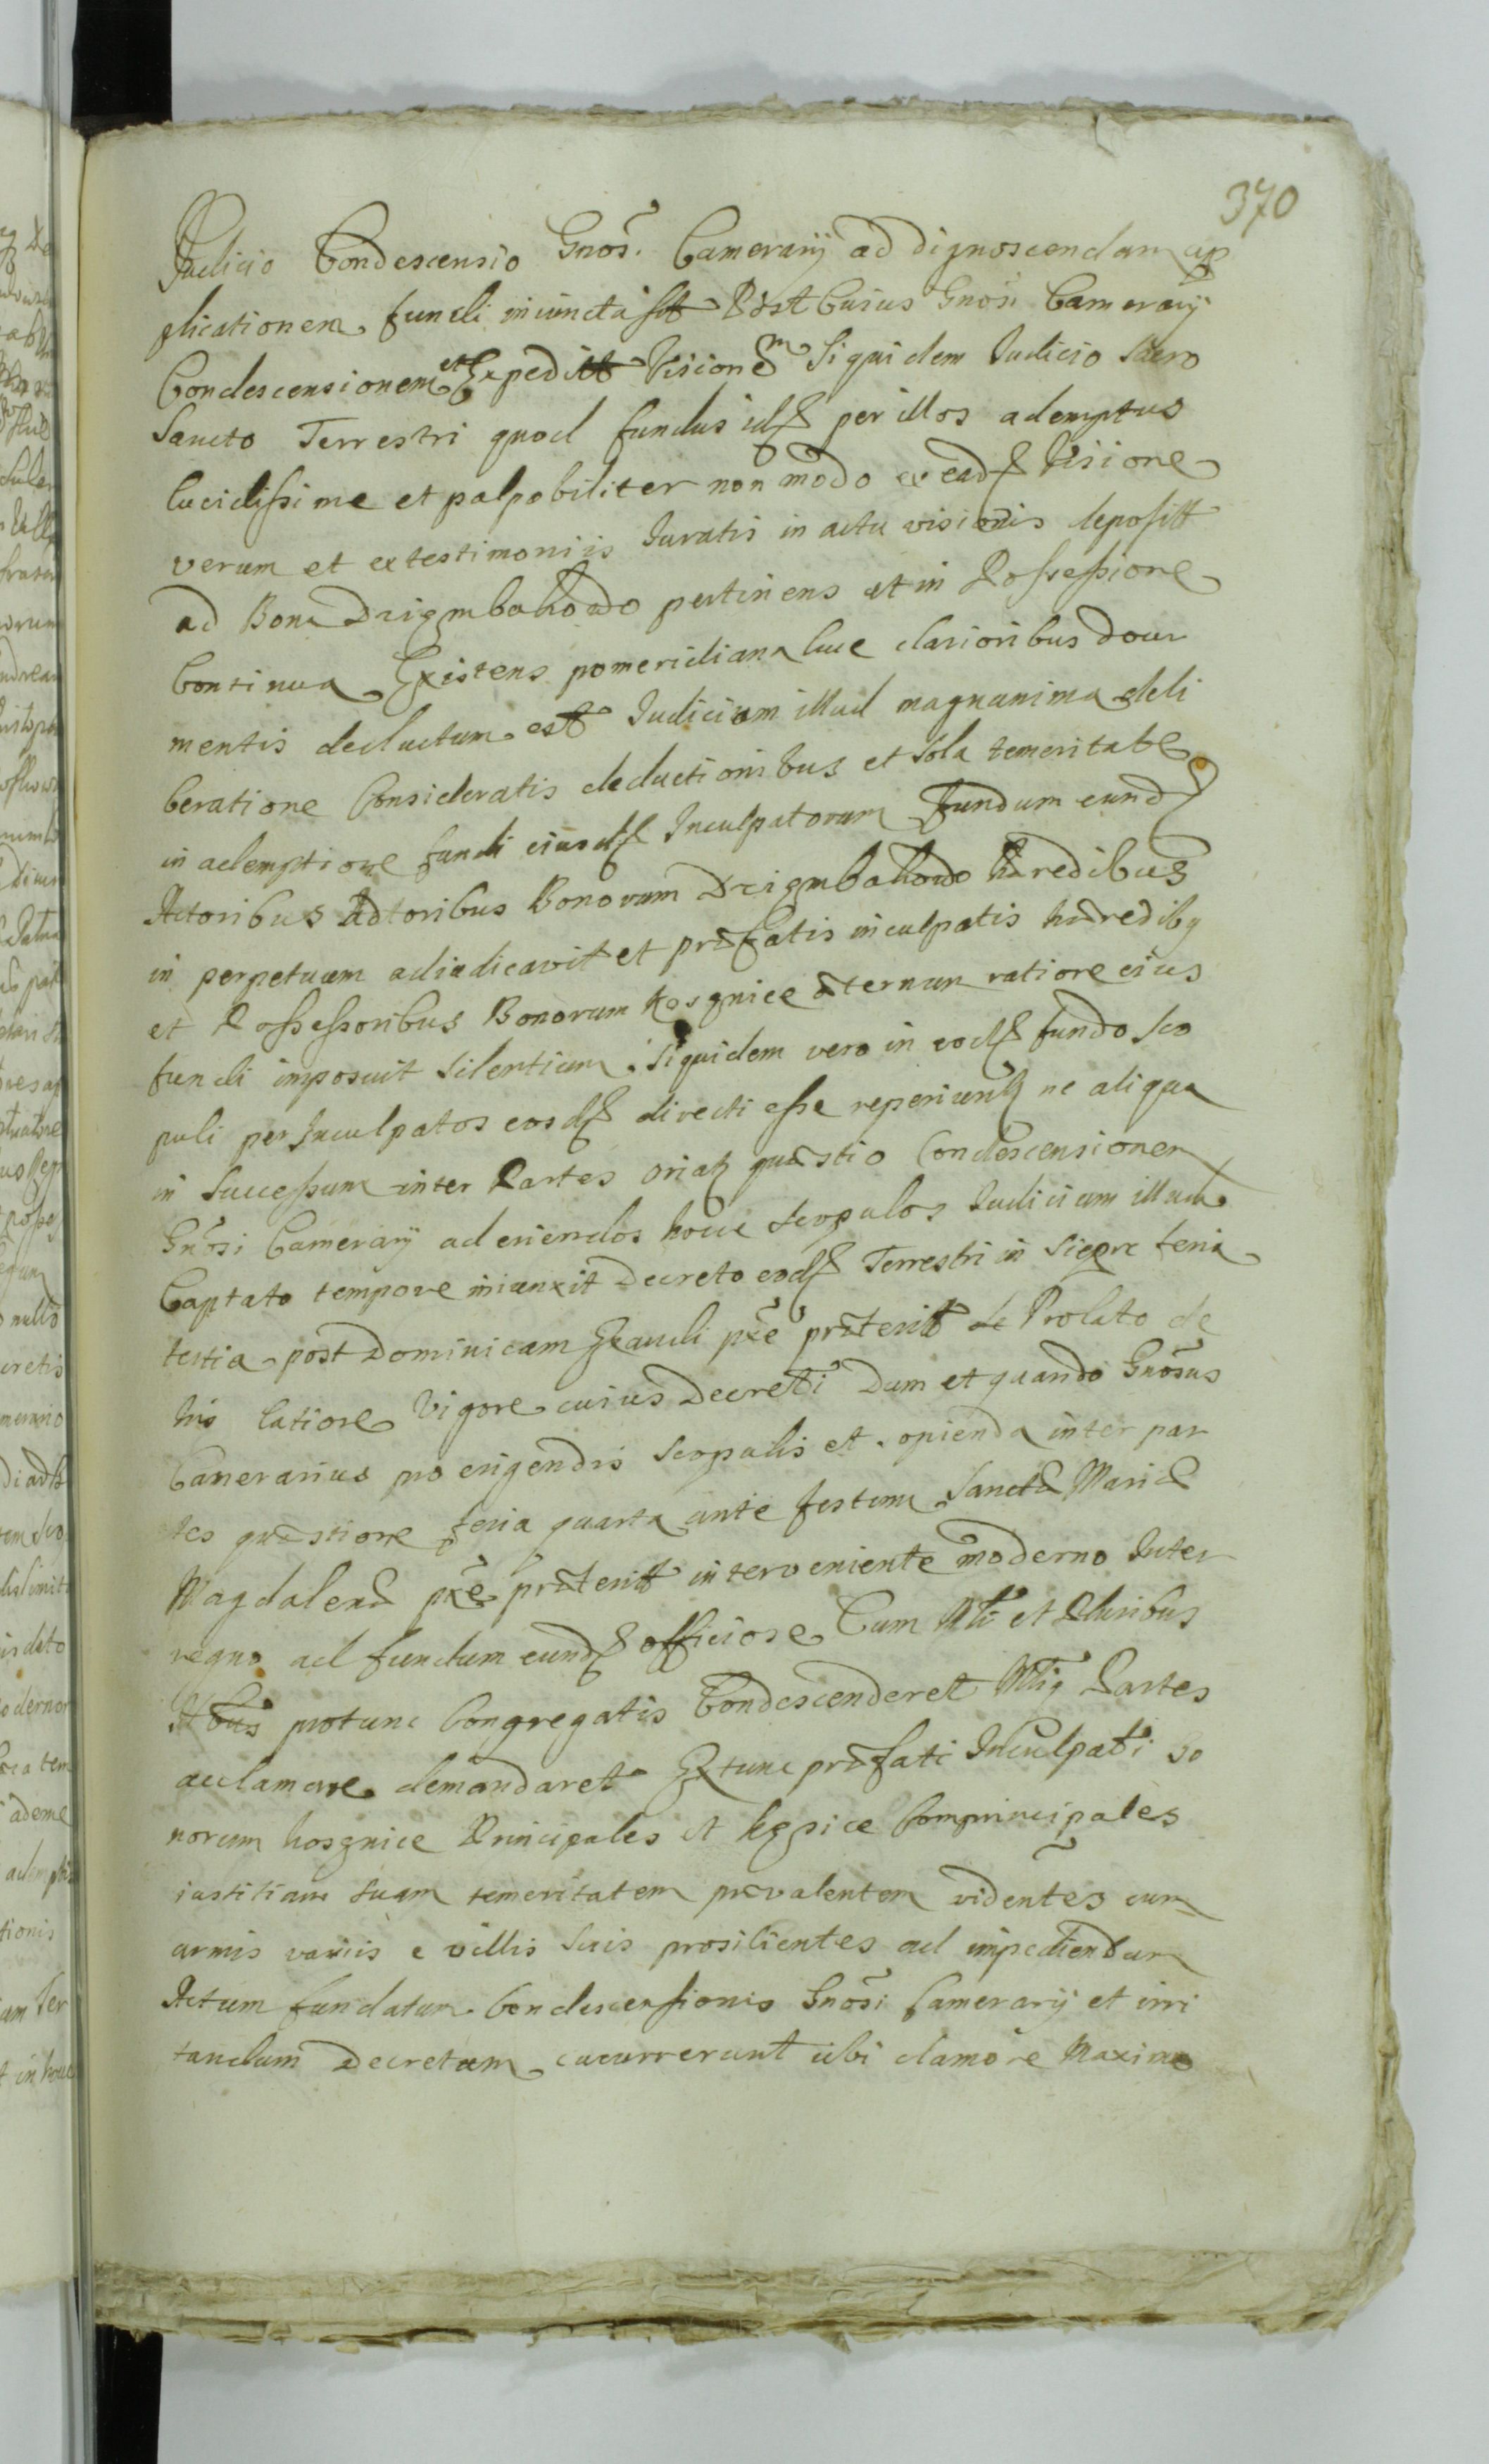 370
Judicio Condescensio Gnosi Camerarij ad dignoscendam ap
plicationem fundi iniuncta est Post Cuius Gnosi Camerarij
Condescensionem et Expeditt Visionem Siquidem Judicio Sacro
Sancto Terrestri quod fundus id per illos ademptus
lucidissime et palpabiliter non modo ex ead Visione
verum et ex testimoniis Juratis in actu visionis depositt
ad Bona Dzigmbakowo pertinens et in Possessione
Continua Existens pomeridiana luce clarioribus docu
mentis deductum est Judicium illud magnanima deli
beratione Consideratis deductionibus et Sola temeritate
in ademptione fundi eiusd Inculpatorum Fundum eund
Actoribus Actoribus Bonorum Dzigmbakowo hæredibus
in perpetuum adiudicavit et præfatis inculpatis hæredibq
et Possessoribus Bonorum Kosgnice æternum ratione eius
fundi imposuit Silentium. Siquidem vero in eod fundo Sco
puli per Inculpatos eosd directi esse reperiunt ne aliqua
in Successum inter Partes oriat quæstio Condescensionem
Gnosi Camerarij ad eriendos hosce Scopulos Judicium illud
Captato tempore iniunxit Decreto eod Terrestri in Siepre feria
tertia post Dominicam Exaudi pxe præteritt de Prolato de
his latiore Vigore cuius Decretti Dum et quando Gnosus
Camerarius pro erigendis Scopulis et sopienda inter par
tes quæstione feria quarta ante festum Sanctæ Mariæ
Magdalenæ pxe præteritt interveniente moderno Inter
regno ad fundum eund officiose Cum et Pluribus
protunc Congregatis Condescenderet Partes
acclamare demandaret Extunc præfati Inculpati Bo
norum Kosgnice Principales et Comprincipales
iustitiam Suam temeritatem prævalentem videntes cum
armis variis e villis Suis prosilientes ad impediendum
Actum fundatum Condescensionis Gnosi Camerarij et irri
tandum Decretum cucurrerunt ubi clamore Maximo